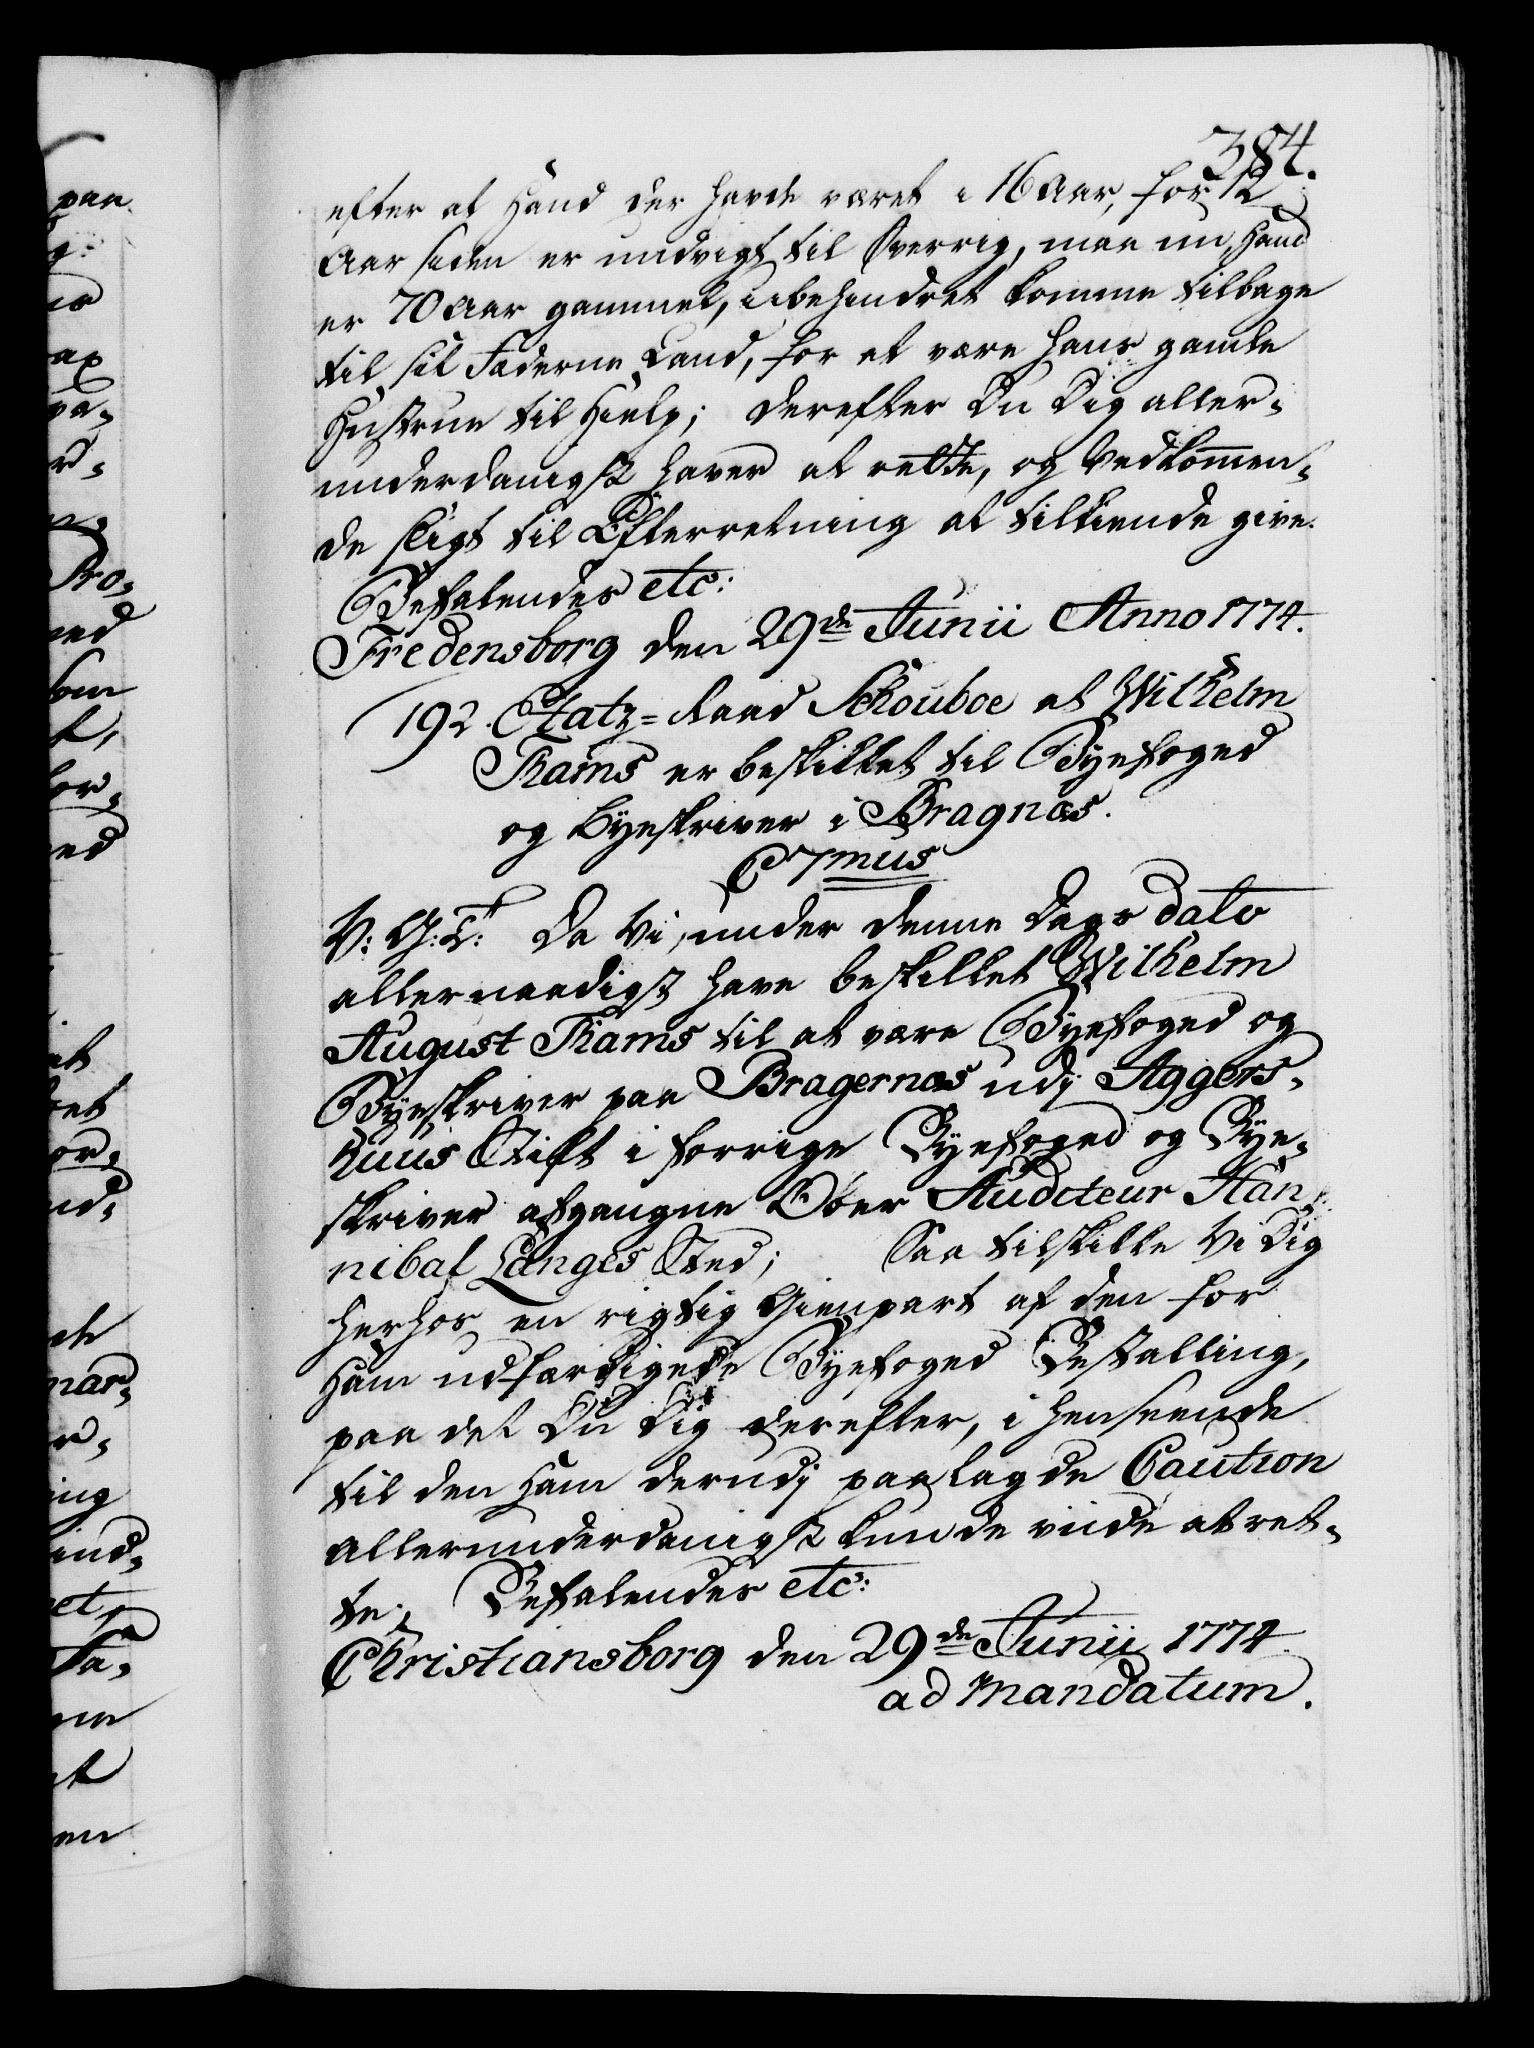 384.
efter at Hand der havde været i 16 Aar, for 12
Aar siden er undvigt til Sverrig, maa nu, Hand
er 70 Aar gammel, ubehindret komme tilbage
til sit Fæderne Land, for at være hans gamle
Hustrue til Hielp; derefter Du Dig aller-
underdanigst haver at rette, og Vedkommen-
de sligt til Efterretning at tilkiende give.
Befalendes etc:
Fredensborg den 29de Junii Anno 1774.
192. Etatz-Raad Schouboe at Wilhelm
Thams er beskikket til Byefoged
og Byeskriver i Bragnæs.
C 7mus
V: G: T: Da Vi, under denne Dags dato
allernaadigst have beskikket Wilhelm
August Thams til at være Byefoged og
Byeskriver paa Bragernæs udj Aggers-
huus Stift i forrige Byefoged og Bye-
skriver afgangne Ober Auditeur Han-
nibal Langes Sted; Saa tilskikke Vi Dig
herhos en rigtig Gienpart af den for
Ham udfærdigede Byefoged Bestalling,
paa det Du Dig derefter, i henseende
til den Ham derudj paalagde Caution
allerunderdanigst kunde viide at ret-
te. Befalendes etc:
Christiansborg den 29de Junii 1774.
ad Mandatum.
paa
ax
Pro-
ned
som
t,
for-
ed
et
or-
nd-
mar-
r-
ing
ind-
et,
Ta-
en